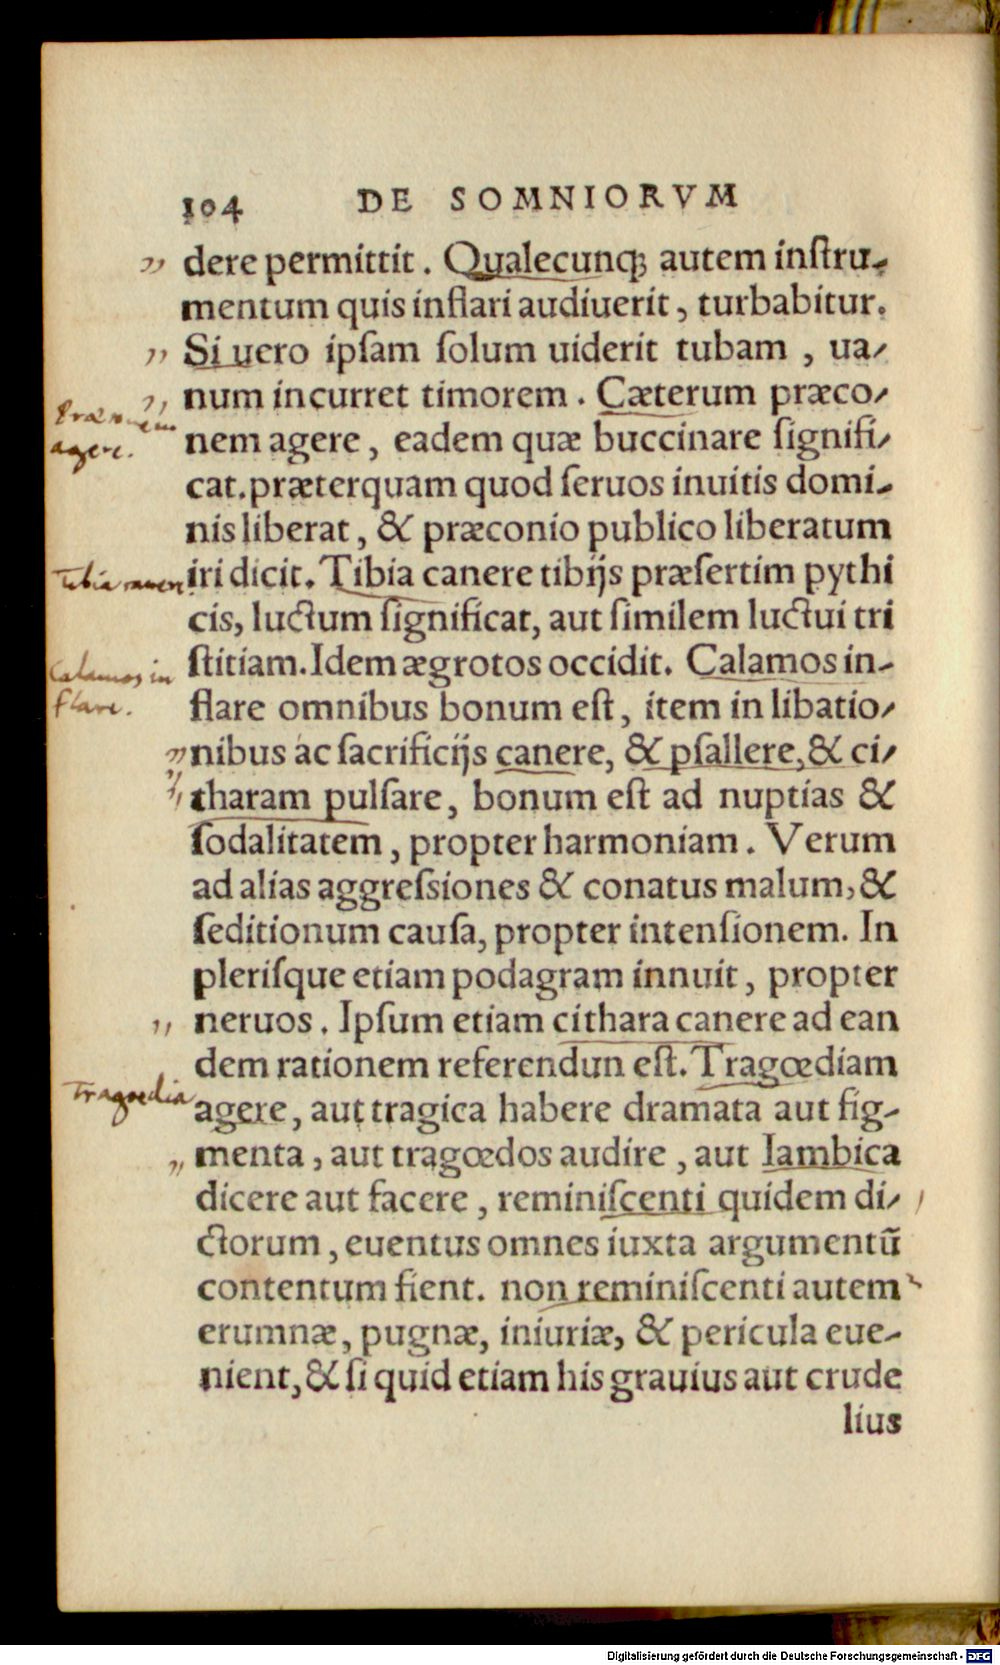 104 DE SOMNIORVM
dere permittit. Qualecunq; autem inſtru-
mentum quis inflari audiuerit, turbabitur.
Si uero ipſam ſolum uiderit tubam, ua-
num incurret timorem. Cæterum præco-
nem agere, eadem quæ buccinare ſignifi-
cat. præterquam quod ſeruos inuitis domi-
nis liberat, & præconio publico liberatum
iri dicit. Tibia canere tibijs præſertim pythi
cis, luctum ſignificat, aut ſimilem luctui tri
ſtitiam. Idem ægrotos occidit. Calamos in-
flare omnibus bonum eſt, item in libatio-
nibus ac ſacrificijs canere, & pſallere, & ci-
tharam pulſare, bonum eſt ad nuptias &
ſodalitatem, propter harmoniam. Verum
ad alias aggreſsiones & conatus malum, &
ſeditionum cauſa, propter intenſionem. In
pleriſque etiam podagram innuit, propter
neruos. Ipſum etiam cithara canere ad ean
dem rationem referendun eſt. Tragœdiam
agere, aut tragica habere dramata aut fig-
menta, aut tragœdos audire, aut Iambica
dicere aut facere, reminiſcenti quidem di-
ctorum, euentus omnes iuxta argumentũ
contentum fient. non reminiſcenti autem
erumnæ, pugnæ, iniuriæ, & pericula eue-
nient, & ſi quid etiam his grauius aut crude
lius
agere.
Tibia canere
Calamos in
flare.
Tragoedia
Digitalisierung gefördert durch die Deutsche Forschungsgemeinschaft - DFG